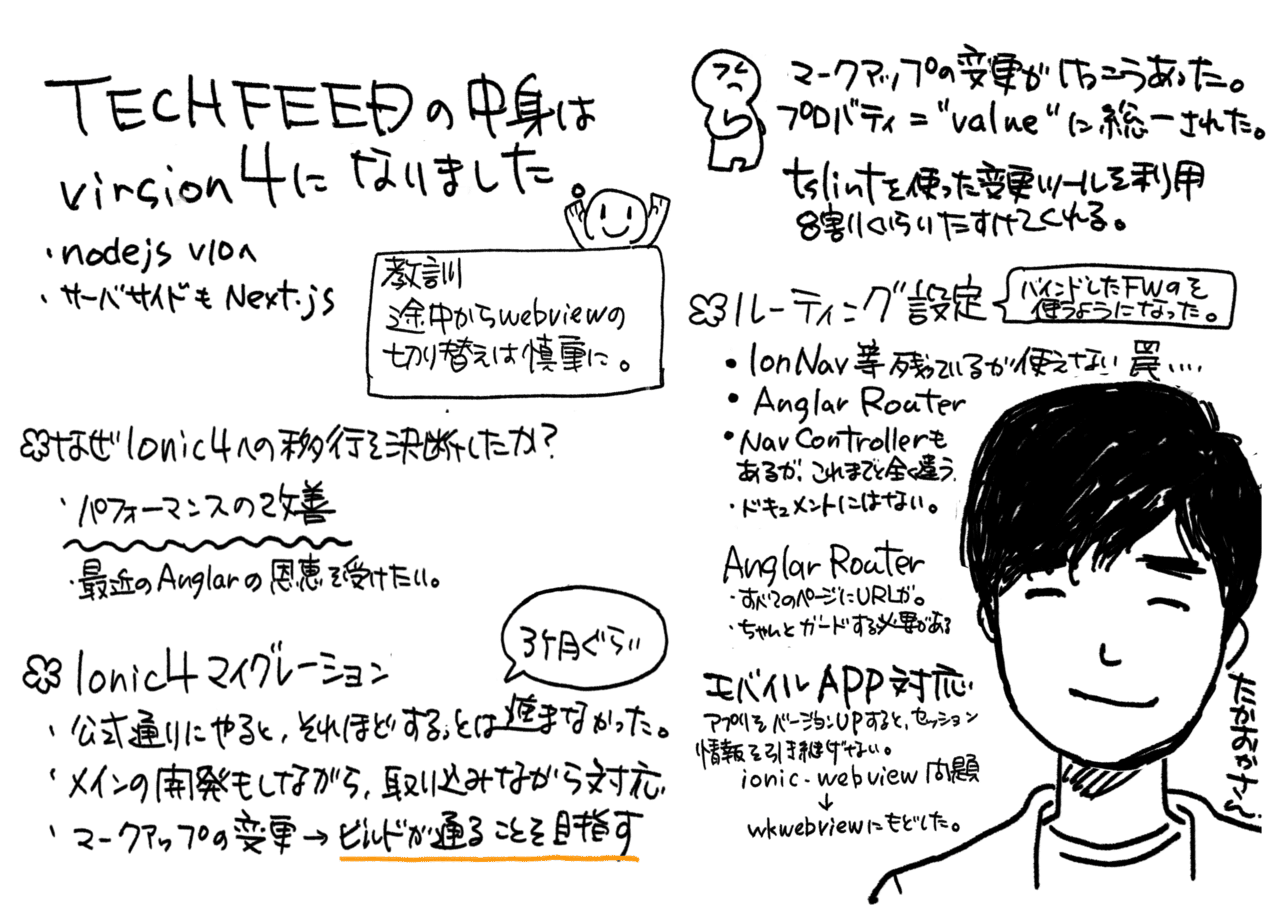 TECHFEEDの中身は
virsion4になりました。
・nodejs v10へ
・サーバサイドもNext.js
教訓
途中からwebviewの
切り替えは慎重に。
なぜIonic4への移行を決断したか?
・パフォーマンスの改善
・最近のAnglarの恩恵を受けたい。
3ケ月ぐらい
Ionic4マイグレーション
・公式通りにやると,それほどするっとは進まなかった。
・メインの開発もしながら,取り込みながら対応
・マークアップの変更→ビルドが通ることを目指す
マークアップの変更がけっこうあった。
プロバティ="value"に総一された。
tslintを使った変更ツールを利用
8割りくらいたすけてくれる。
ルーティング設定
バインドしたFWのを
使うようになった。
・IonNav等残っているが使えない罠....
・Anglar Router
・Nav Controllerも
あるが、これまでと全く違う
・ドキュメントにはない。
Anglar Router
・すべてのページにURLが。
・ちゃんとガードする必要がある
モバイルAPP対応
アプリをバージョンUPすると,セッション
情報を引き継げない。
ionic-webview問題
↓
wkwebviewにもどした。
たかおかさん